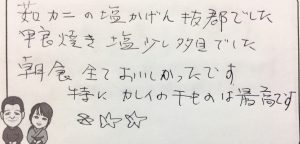 茹カニの塩かげん抜群でした
甲良焼き塩少し多目でした
朝食全ておいしかったです
特にカレイの干ものは最高です
☆☆☆